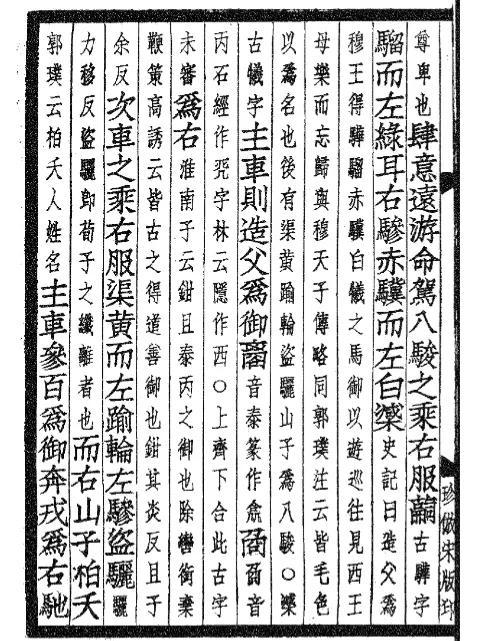 尊卑也肆意遠游命駕八駿之乘右服古驊字
騮而左綠耳右驂赤驥而左白史記曰造父爲
穆王得驊騮赤驥白犧之馬御以遊巡往見西王
母樂而忘歸與穆天子傳略同郭璞注云皆毛色
以爲名也後有渠黄踰輪盜驪山子爲八駿○
古犧字主車則造父爲御音泰篆作音
丙石經作字林云隱作西○上齊下合此古字
未審爲右淮南子云鉗且泰丙之御也除轡銜棄
鞭策高誘云皆古之得道善御也鉗其炎反且子
余反次車之乘右服渠黄而左踰輪左驂盜驪驪
力移反盜驪卽荀子之纖離者也而右山子柏夭
郭璞云柏夭人姓名主車參百爲御奔戎爲右馳
珍倣宋版印